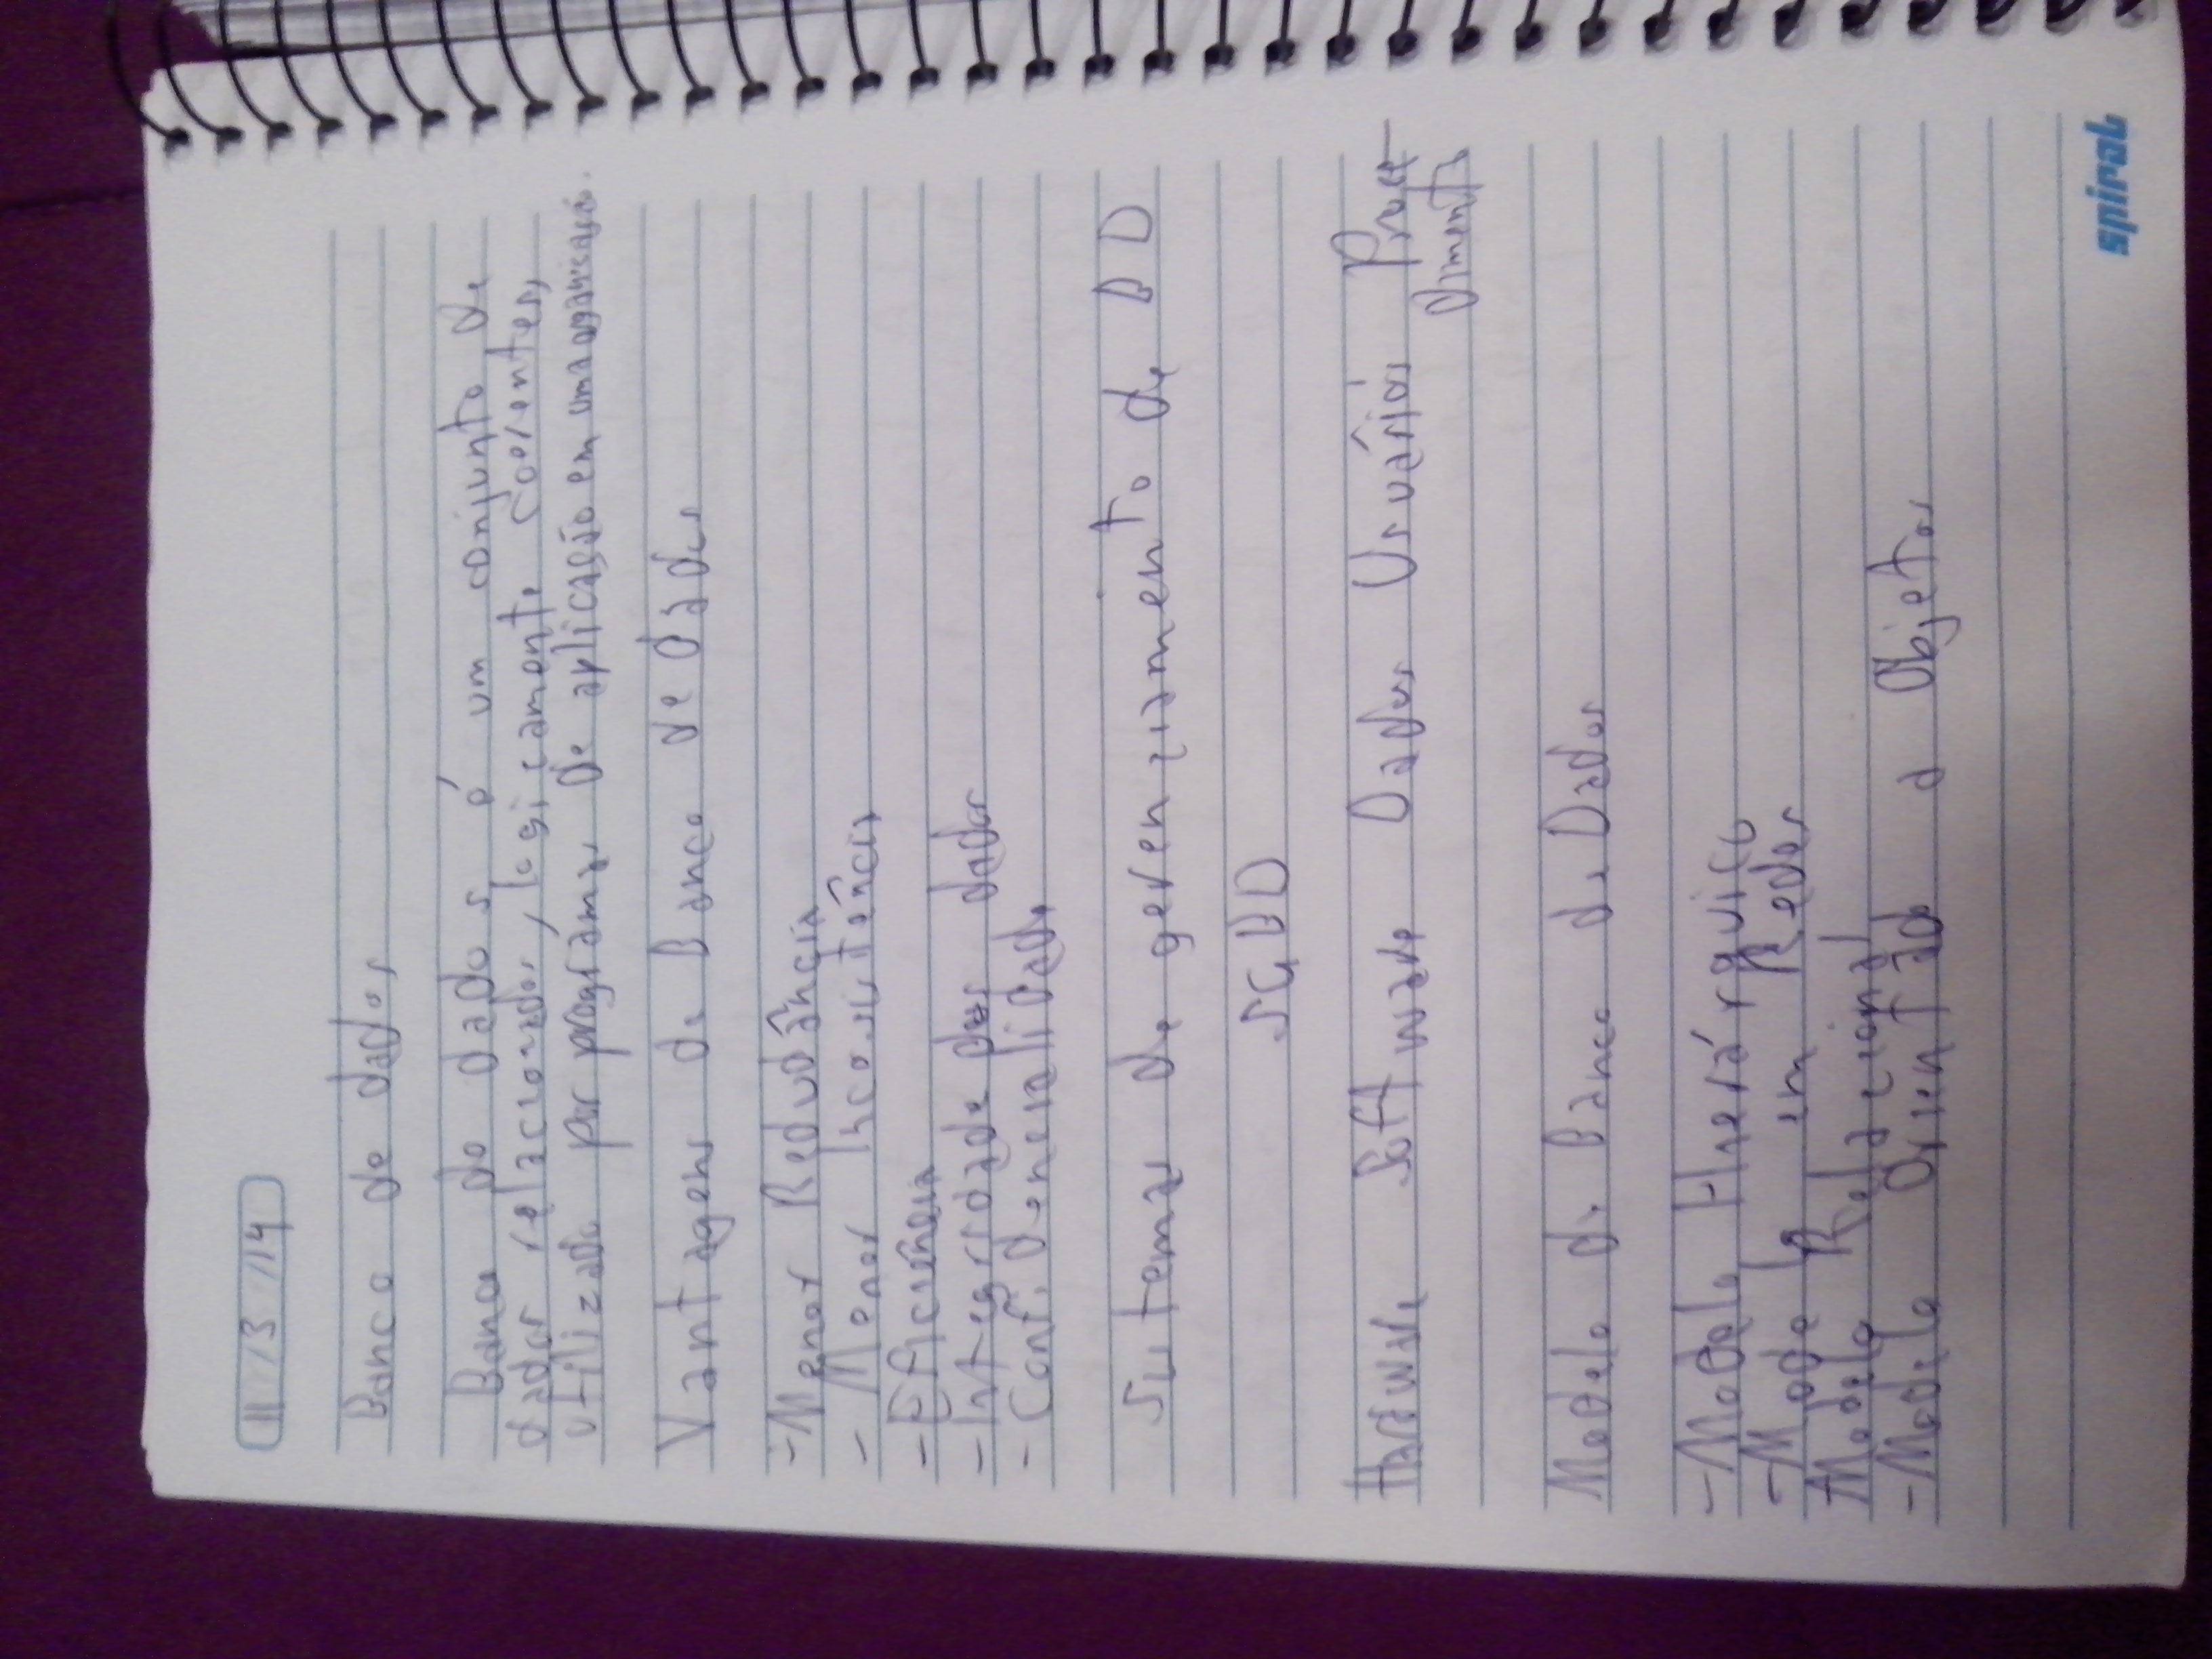 11 / 3 / 14
Banco de dados
Banco de dados é um conjunto de
dados relacionados, logicamente coerentes,
utilizado por programas de aplicação em uma organização.
Vantagens de Banco de Dados
- Menor Redudância
- Menor Incosistência
- Eficiência
- Integridade dos dados
- Confidencialidade
Sistemas de gerenciamento de BD
SGBD
Hardware Software Dados Usuários Proce-
dimento
Modelo de Banco de Dados
- Modelo Hierárquico
- Modelo em Redes
Modelo Relacional
- Modelo Orientado a Objetos
spiral